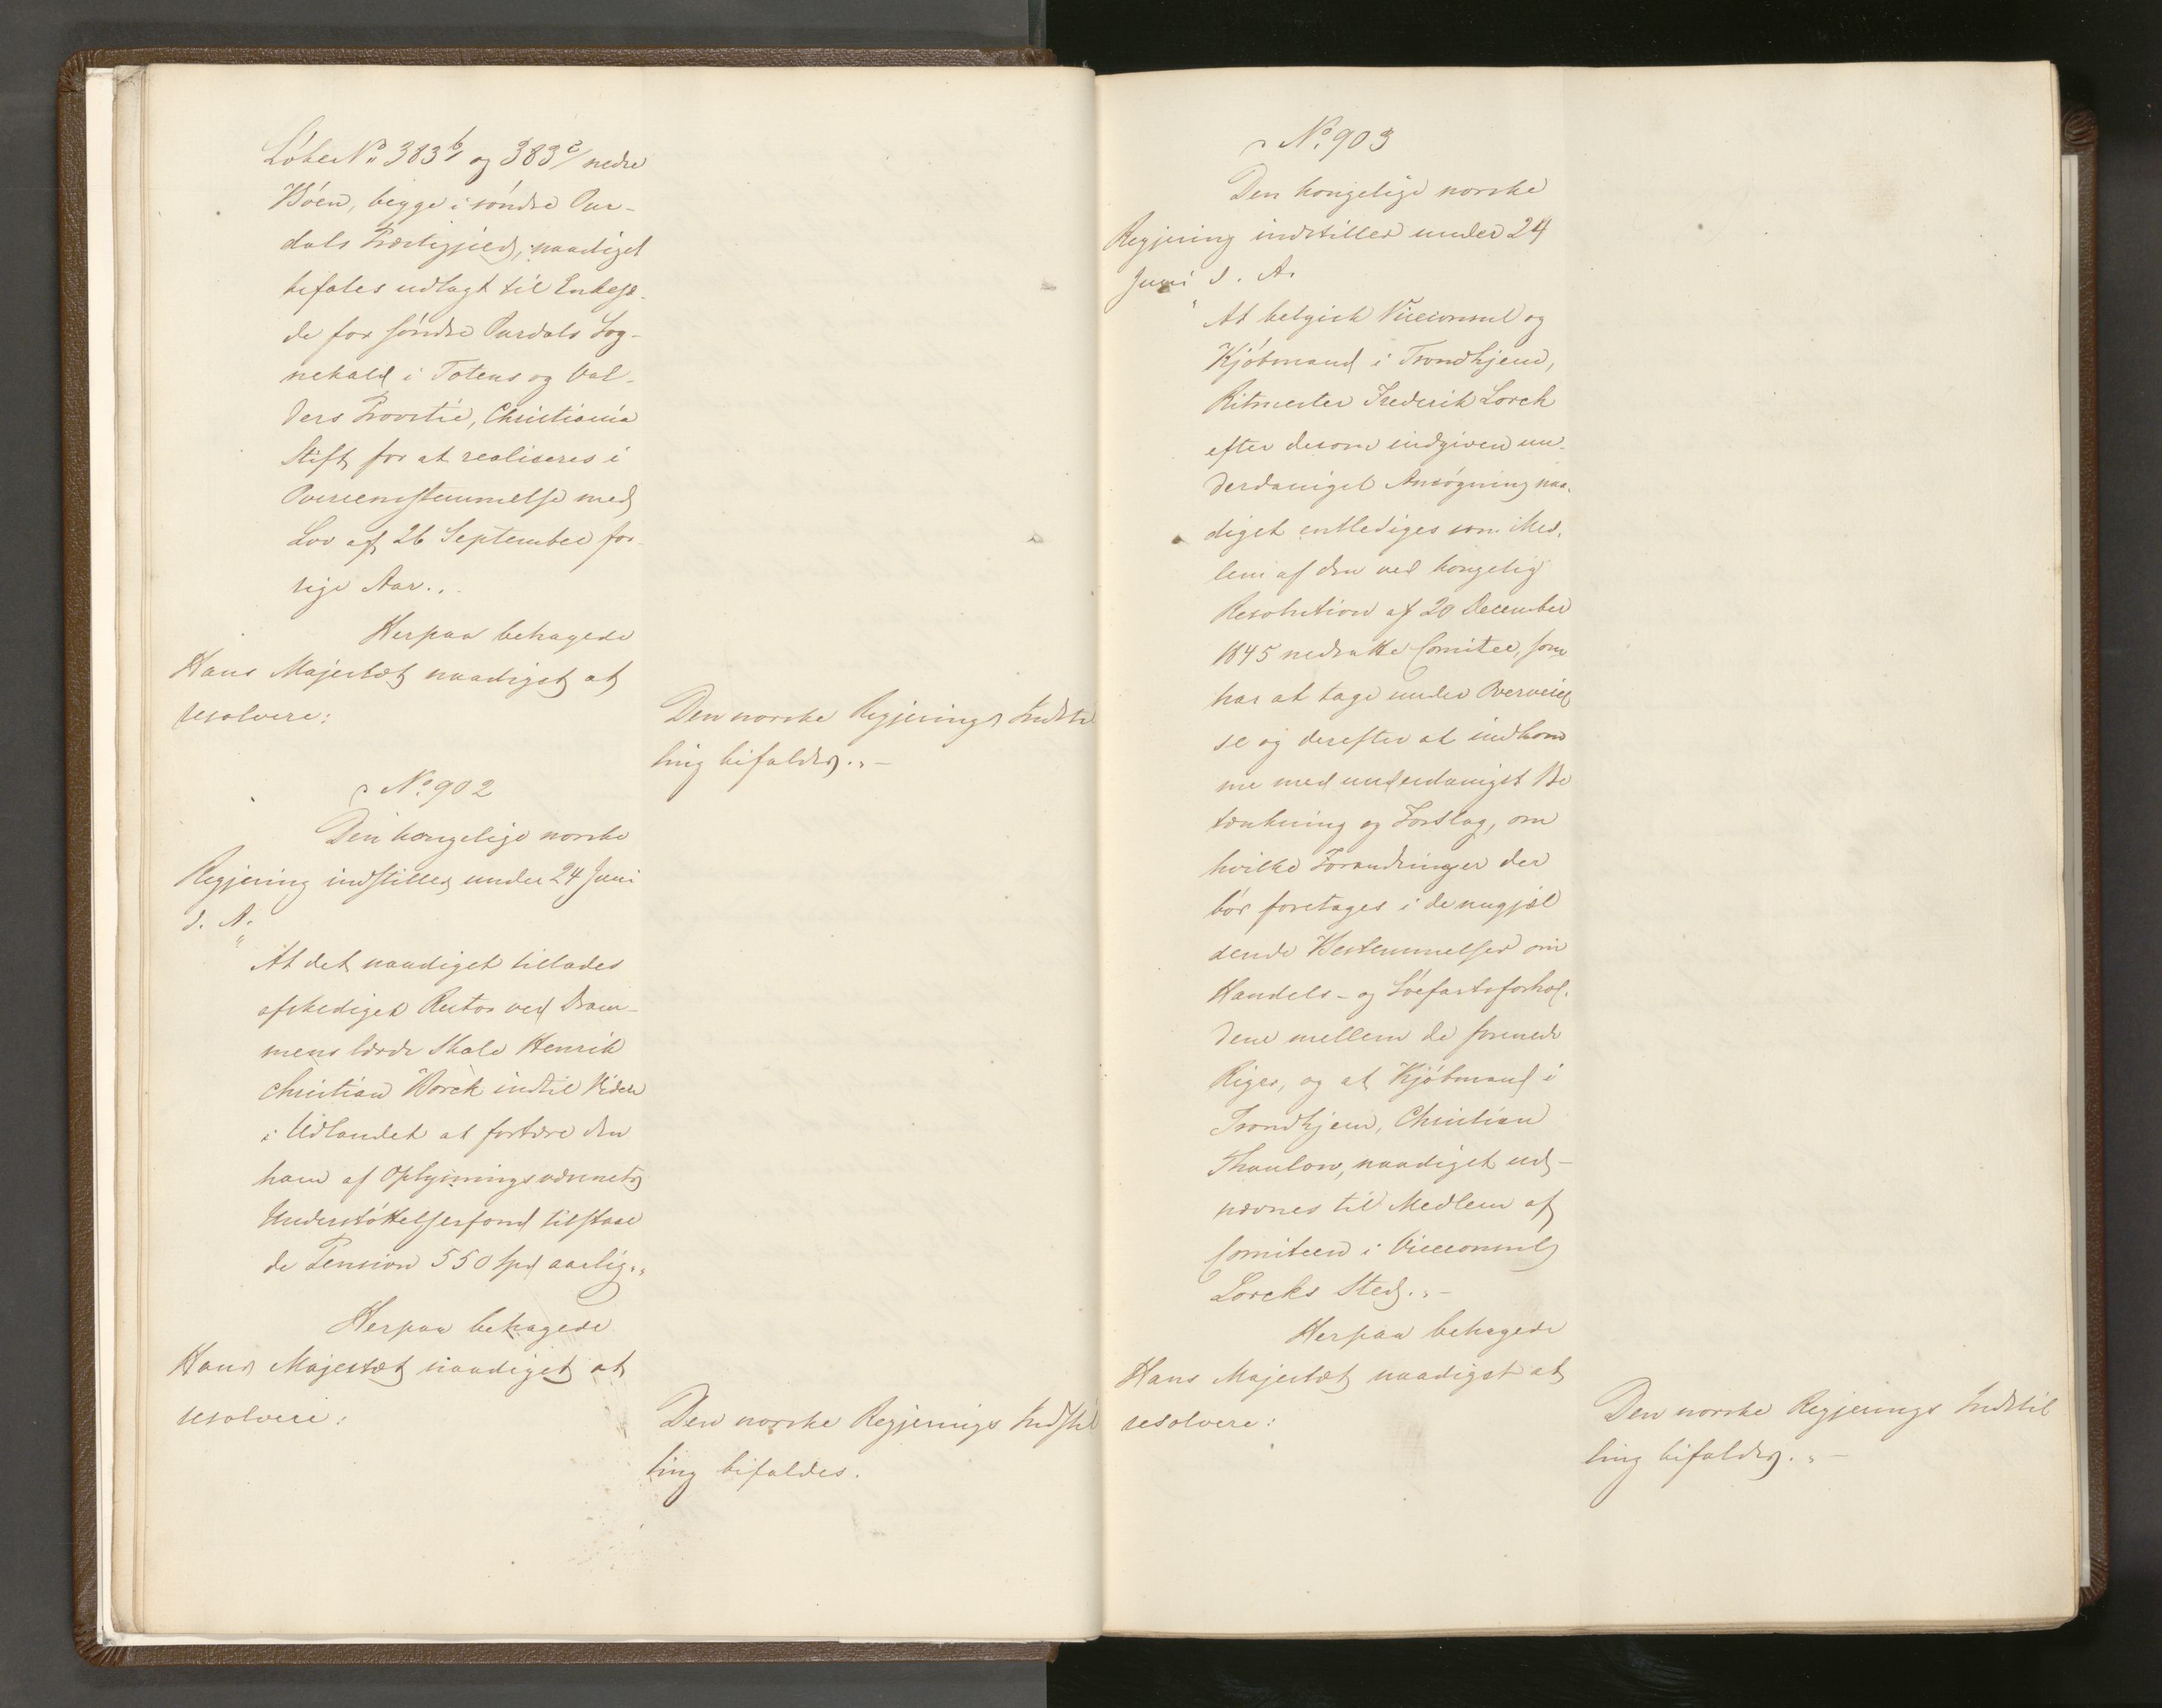 Löbe No 383 b/ og 383 c/ nedre
Böen, begge i söndre Aur-
dals Præstegjeld, naadigst
befales udlagt til Enkesæ-
de for söndre Aurdals Sog-
nekald i Totens og Val-
ders Provstie, Christiania
Stift for at realiseres i
Overensstemmelse med
Lov af 26 September for-
rige Aar..
Herpaa behagede
Hans Majestæt naadigst at
resolvere:
Den norske Regjerings Indstil
ling bifaldes.,-
No 902
Den kongelige norske
Regjering indstiller under 24 Juni
d. A.
"At det naadigst tillades
afskediget Rector ved Dram-
mens lærde Skole Henrik
Christian Borck indtil Videre
i Udlandet at fortære den
ham af Oplysningsvæsenets
Understöttelsesfond tilstaae
de Pension 550 Spd aarlig.,
Herpaa behagede
Hans Majestæt naadigst at
resolvere:
Den norske Regjerings Indstil
ling bifaldes.
No 903
Den kongelige norske
Regjering indstiller under 24
Juni d. A.
"At belgisk Viceconsul og
Kjöbmand i Trondhjem,
Ritmester Frederik Lorck
efter derom indgiven un-
derdanigst Ansögning naa-
digst entlediges som Med-
lem af den ved kongelig
Resolution af 20 December
1845 nedsatte Comitee, som
har at tage under Overveiel
se og derefter at indkom
me med underdanigst Be
tænkning og Forslag, om
hvilke Forandringer der
bör foretages i de nugjæl
dende Bestemmelser om
Handels- og Söefartsforhol-
dene mellem de forenede
Riger, og at Kjöbmand i
Trondhjem, Christian
Thaulow, naadigst ud-
nævnes til Medlem af
Comiteen i Viceconsul
Lorcks Sted.,-
Herpaa behagede
Hans Majestæt naadigst at
resolvere:
Den norske Regjerings Indstil
ling bifaldes.,-